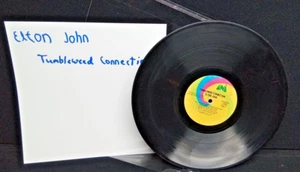 Elton John
Tumbleweed Connectio